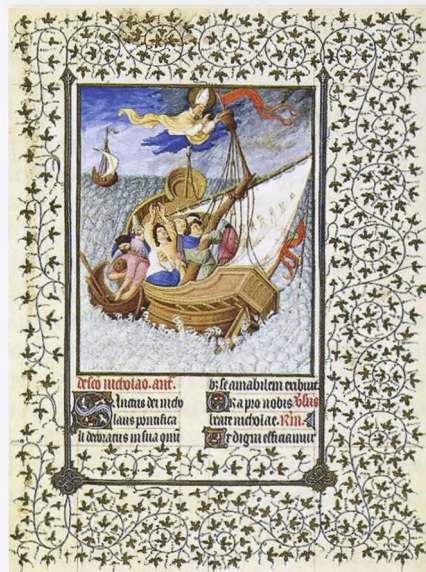 de sco nicholao. ant.
Sanctus dei nicho
laus pontifica
li decoratus in sua omni
b; se amabilem exibuit
Ora pro nobis
beate nicholae.
Vt digni efficiamur